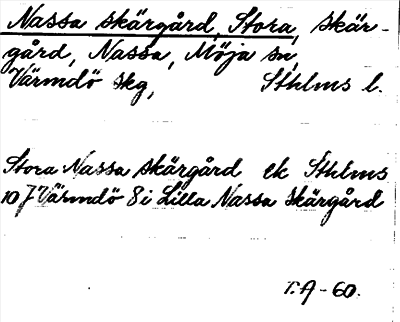 Nassa skärgård, Stora, skär-
gård, Nassa, Möja sn,
Värmdö skg, Sthlms l.
Stora Nassa skärgård ek Sthlms
10 J Värmdö 8 i Lilla Nassa skärgård
T.A-60.